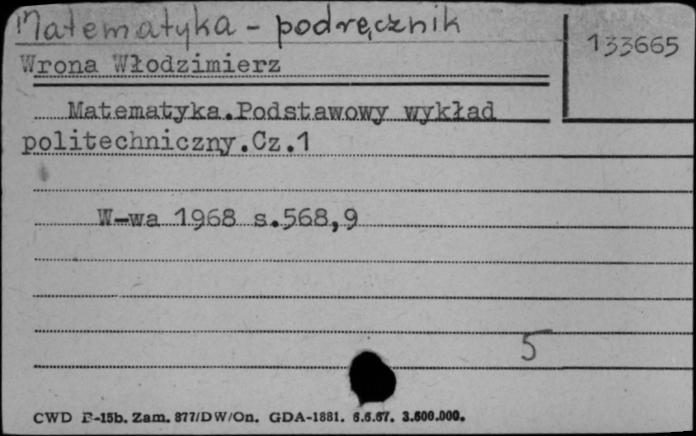 Matematyka - podręcznik
133665
Wrona Włodzimierz
Matematyka.Podstawowy wykład
politechniczny.Cz.1
W-wa 1968 s.568,9
5
CWD E-15b. Zam. 877/DW/On. GDA-1881. 6.6.67. 3.600.000.